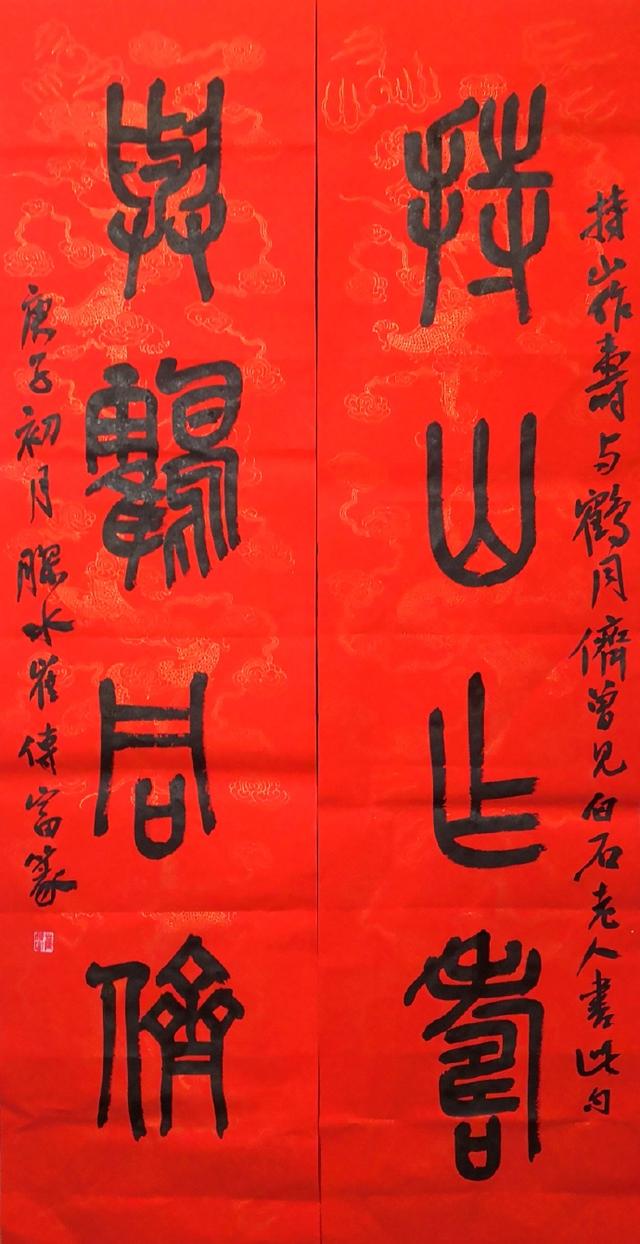 持山作壽
持山作壽与鶴同儕曾见白石老人書此句
與鶴同儕
庚子初月膠水崔傳富篆